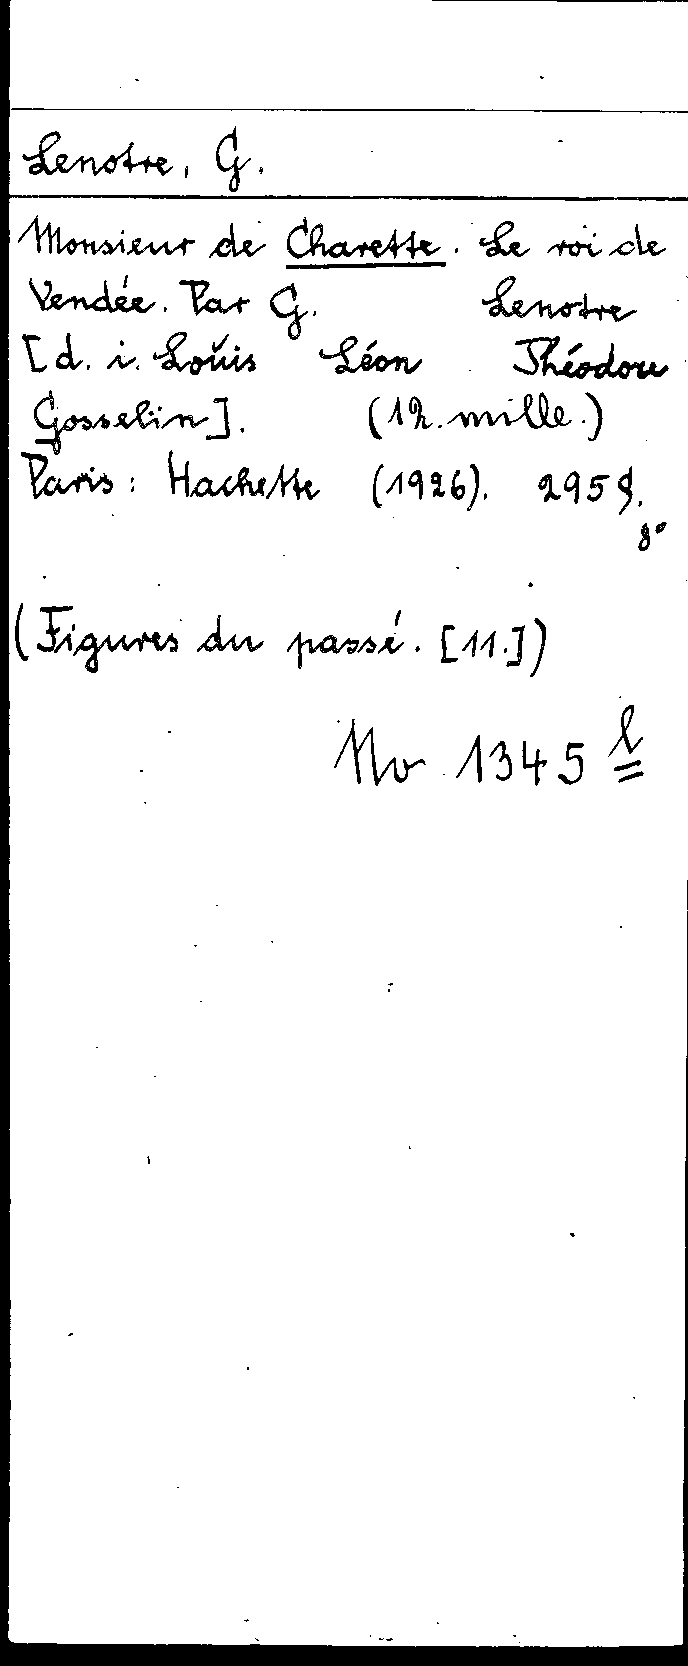 Lenotre, G.
Monsieur de Charette. Le roi de
Vendée. Par G. Lenotre
[d. i. Louis Léon Théodore
Gosselin]. (12. mille.)
Paris: Hachette (1926). 295 S.
8°
(Figures du passé. [11.])
No 1345 l